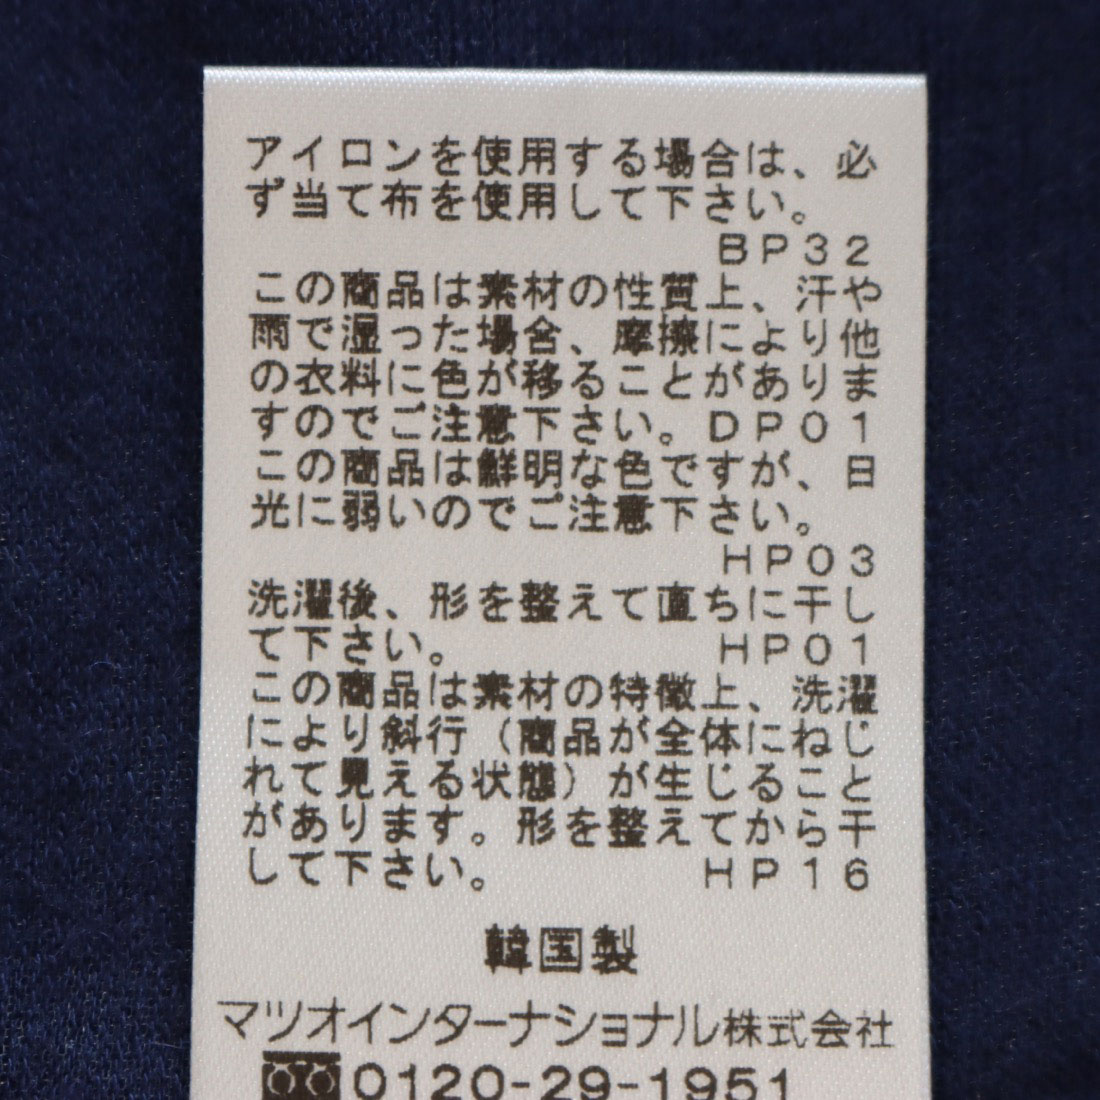 アイロンを使用する場合は、必
ず当て布を使用して下さい。
BP32
この商品は素材の性質上、汗や
雨で湿った場合、摩擦により他
の衣料に色が移ることがありま
すのでご注意下さい。DP01
この商品は鮮明な色ですが、日
光に弱いのでご注意下さい。
HP03
洗濯後、形を整えて直ちに干し
て下さい。 HP01
この商品は素材の特徴上、洗濯
により斜行(商品が全体にねじ
れて見える状態)が生じること
があります。形を整えてから干
して下さい。 HP16
韓国製
マツオインターナショナル株式会社
0120-29-1951